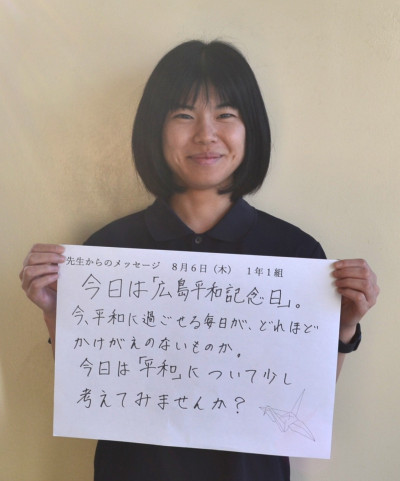 先生からのメッセージ 8月6日(木) 1年1組
今日は「広島平和記念日」。
今、平和に過ごせる毎日が、どれほど
かけがえのないものか。
今日は「平和」について少し
考えてみませんか？